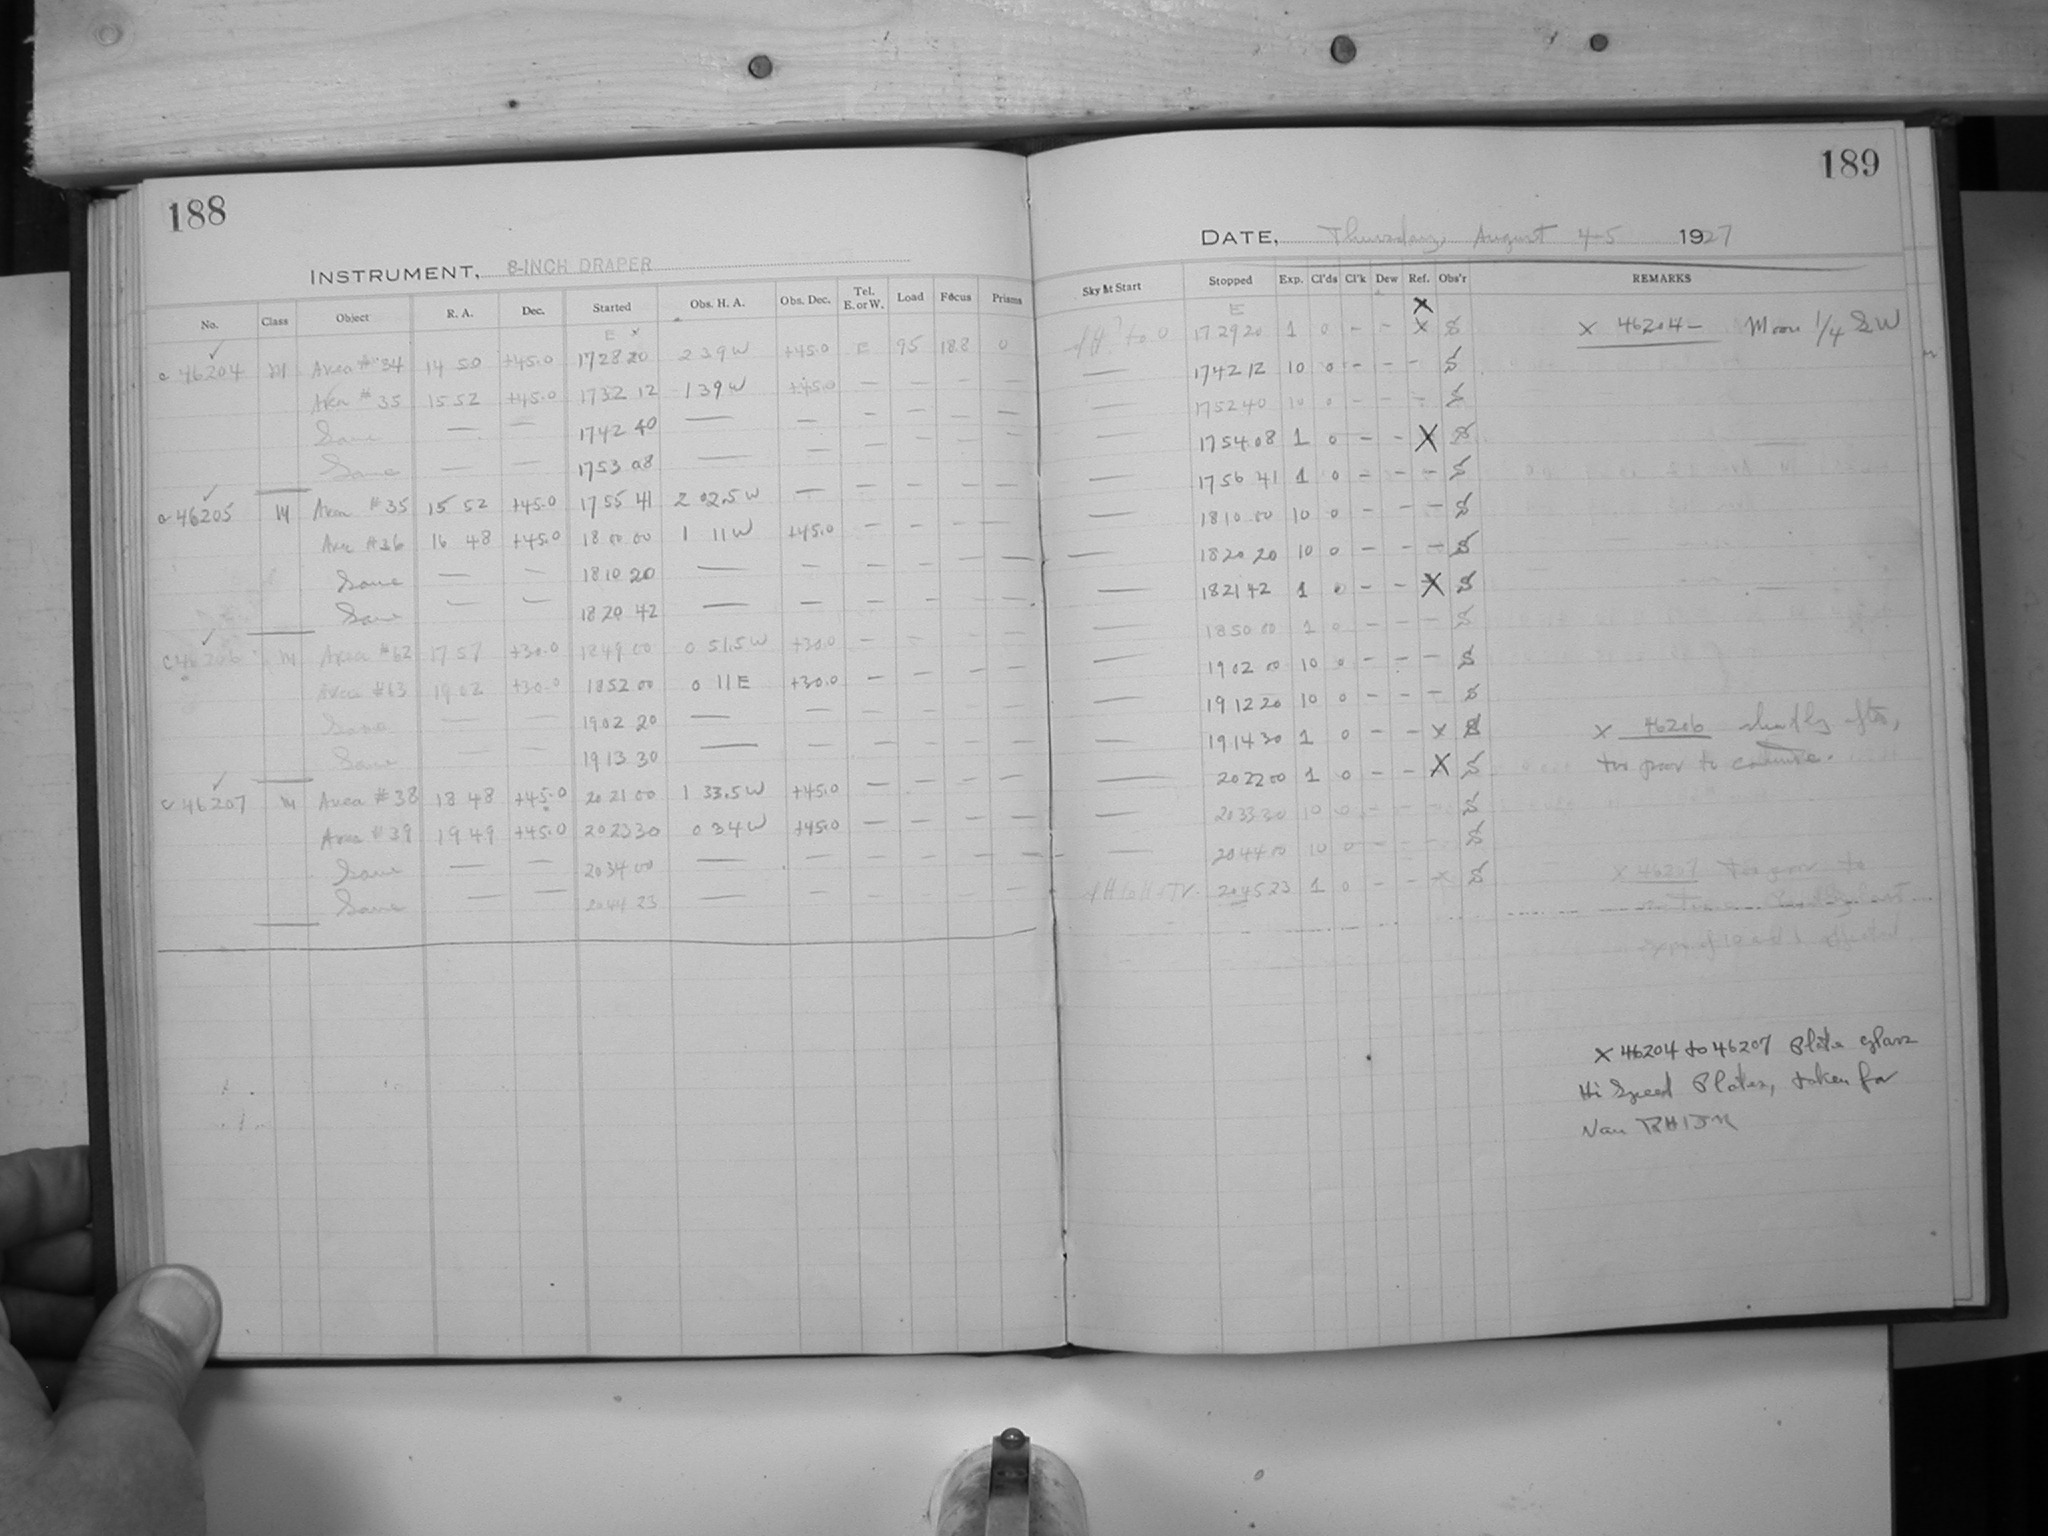 188
INSTRUMENT, 8-INCH DRAPER
No. Class Object R. A. Dec. Started Obs. H. A. Obs. Dec. Tel. E. or W. Load Focus Prisms
E x
c 46204 M Area # 34 14 50 +45.0 17 28 20 2 39 W +45.0 E 95 18.8 0
Area # 35 15 52 +45.0 17 32 12 1 39 W +45.0 — — — —
Same — — 17 42 40 — — — — — —
Same — — 17 53 08 — — — — — —
c 46205 M Area # 35 15 52 +45.0 17 55 41 2 02.5 W — — — — —
Area # 36 16 48 +45.0 18 00 00 1 11 W +45.0 — — — —
Same — — 18 10 20 — — — — — —
Same — — 18 20 42 — — — — — —
c 46206 M Area # 62 17 57 +30.0 18 49 00 0 51.5 W +30.0 — — — —
Area # 63 19 02 +30.0 18 52 00 0 11 E +30.0 — — — —
Same — — 19 02 20 — — — — — —
Same — — 19 13 30 — — — — — —
c 46207 M Area # 38 18 48 +45.0 20 21 00 1 33.5 W +45.0 — — — —
Area # 39 19 49 +45.0 20 23 30 0 34 W +45.0 — — — —
Same — — 20 34 00 — — — — — —
Same — — 20 44 23 — — — — — —
189
DATE, Thursday, August 4-5 1927
Sky at Start Stopped Exp. Cl'ds Cl'k Dew Ref. Obs'r REMARKS
E X
to 0 17 29 20 1 0 - - X S X 46204 - Moon 1/4 SW
— 17 42 12 10 0 - - - S
— 17 52 40 10 0 - - - S
— 17 54 08 1 0 - - X S
— 17 56 41 1 0 - - - S
— 18 10 00 10 0 - - - S
— 18 20 20 10 0 - - - S
— 18 21 42 1 0 - - X S
— 18 50 00 1 0 - - - S
— 19 02 00 10 0 - - - S
— 19 12 20 10 0 - - - S
— 19 14 30 1 0 - - X S X 46206
— 20 22 00 1 0 - - X S too poor to continue.
— 20 33 30 10 0 - - - S
— 20 44 00 10 0 - - - S
20 45 23 1 0 - - X S X 46207 Too poor to
X 46204 to 46207 Plate glass
Hi Speed Plates, taken for
Van RHIJN